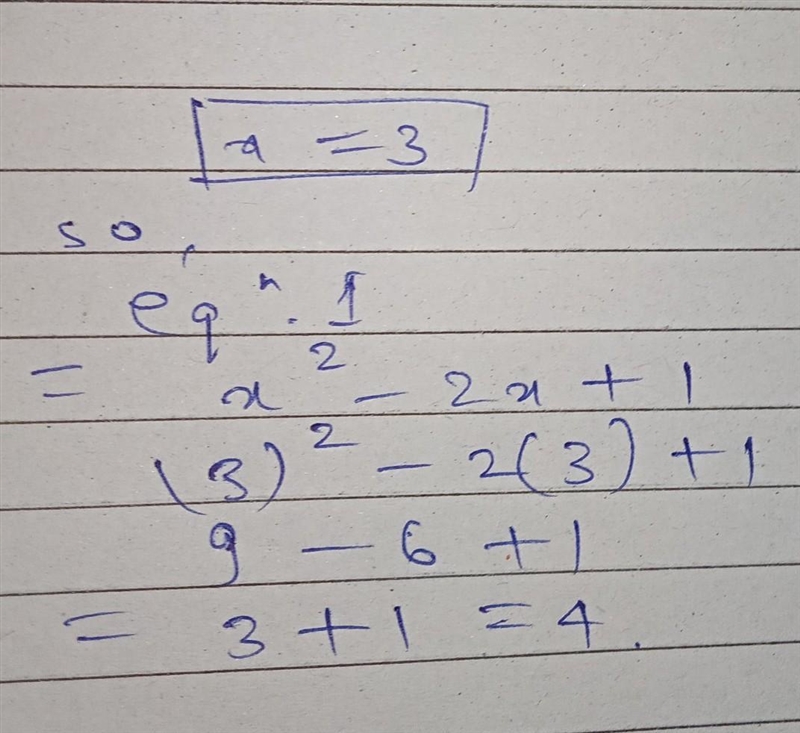 x = 3
so,
eqⁿ. 1
= x² - 2x + 1
(3)² - 2(3) + 1
9 - 6 + 1
= 3 + 1 = 4.